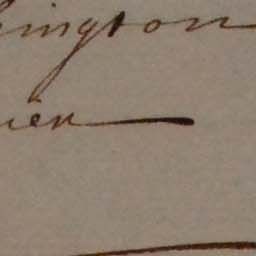 ington
ien